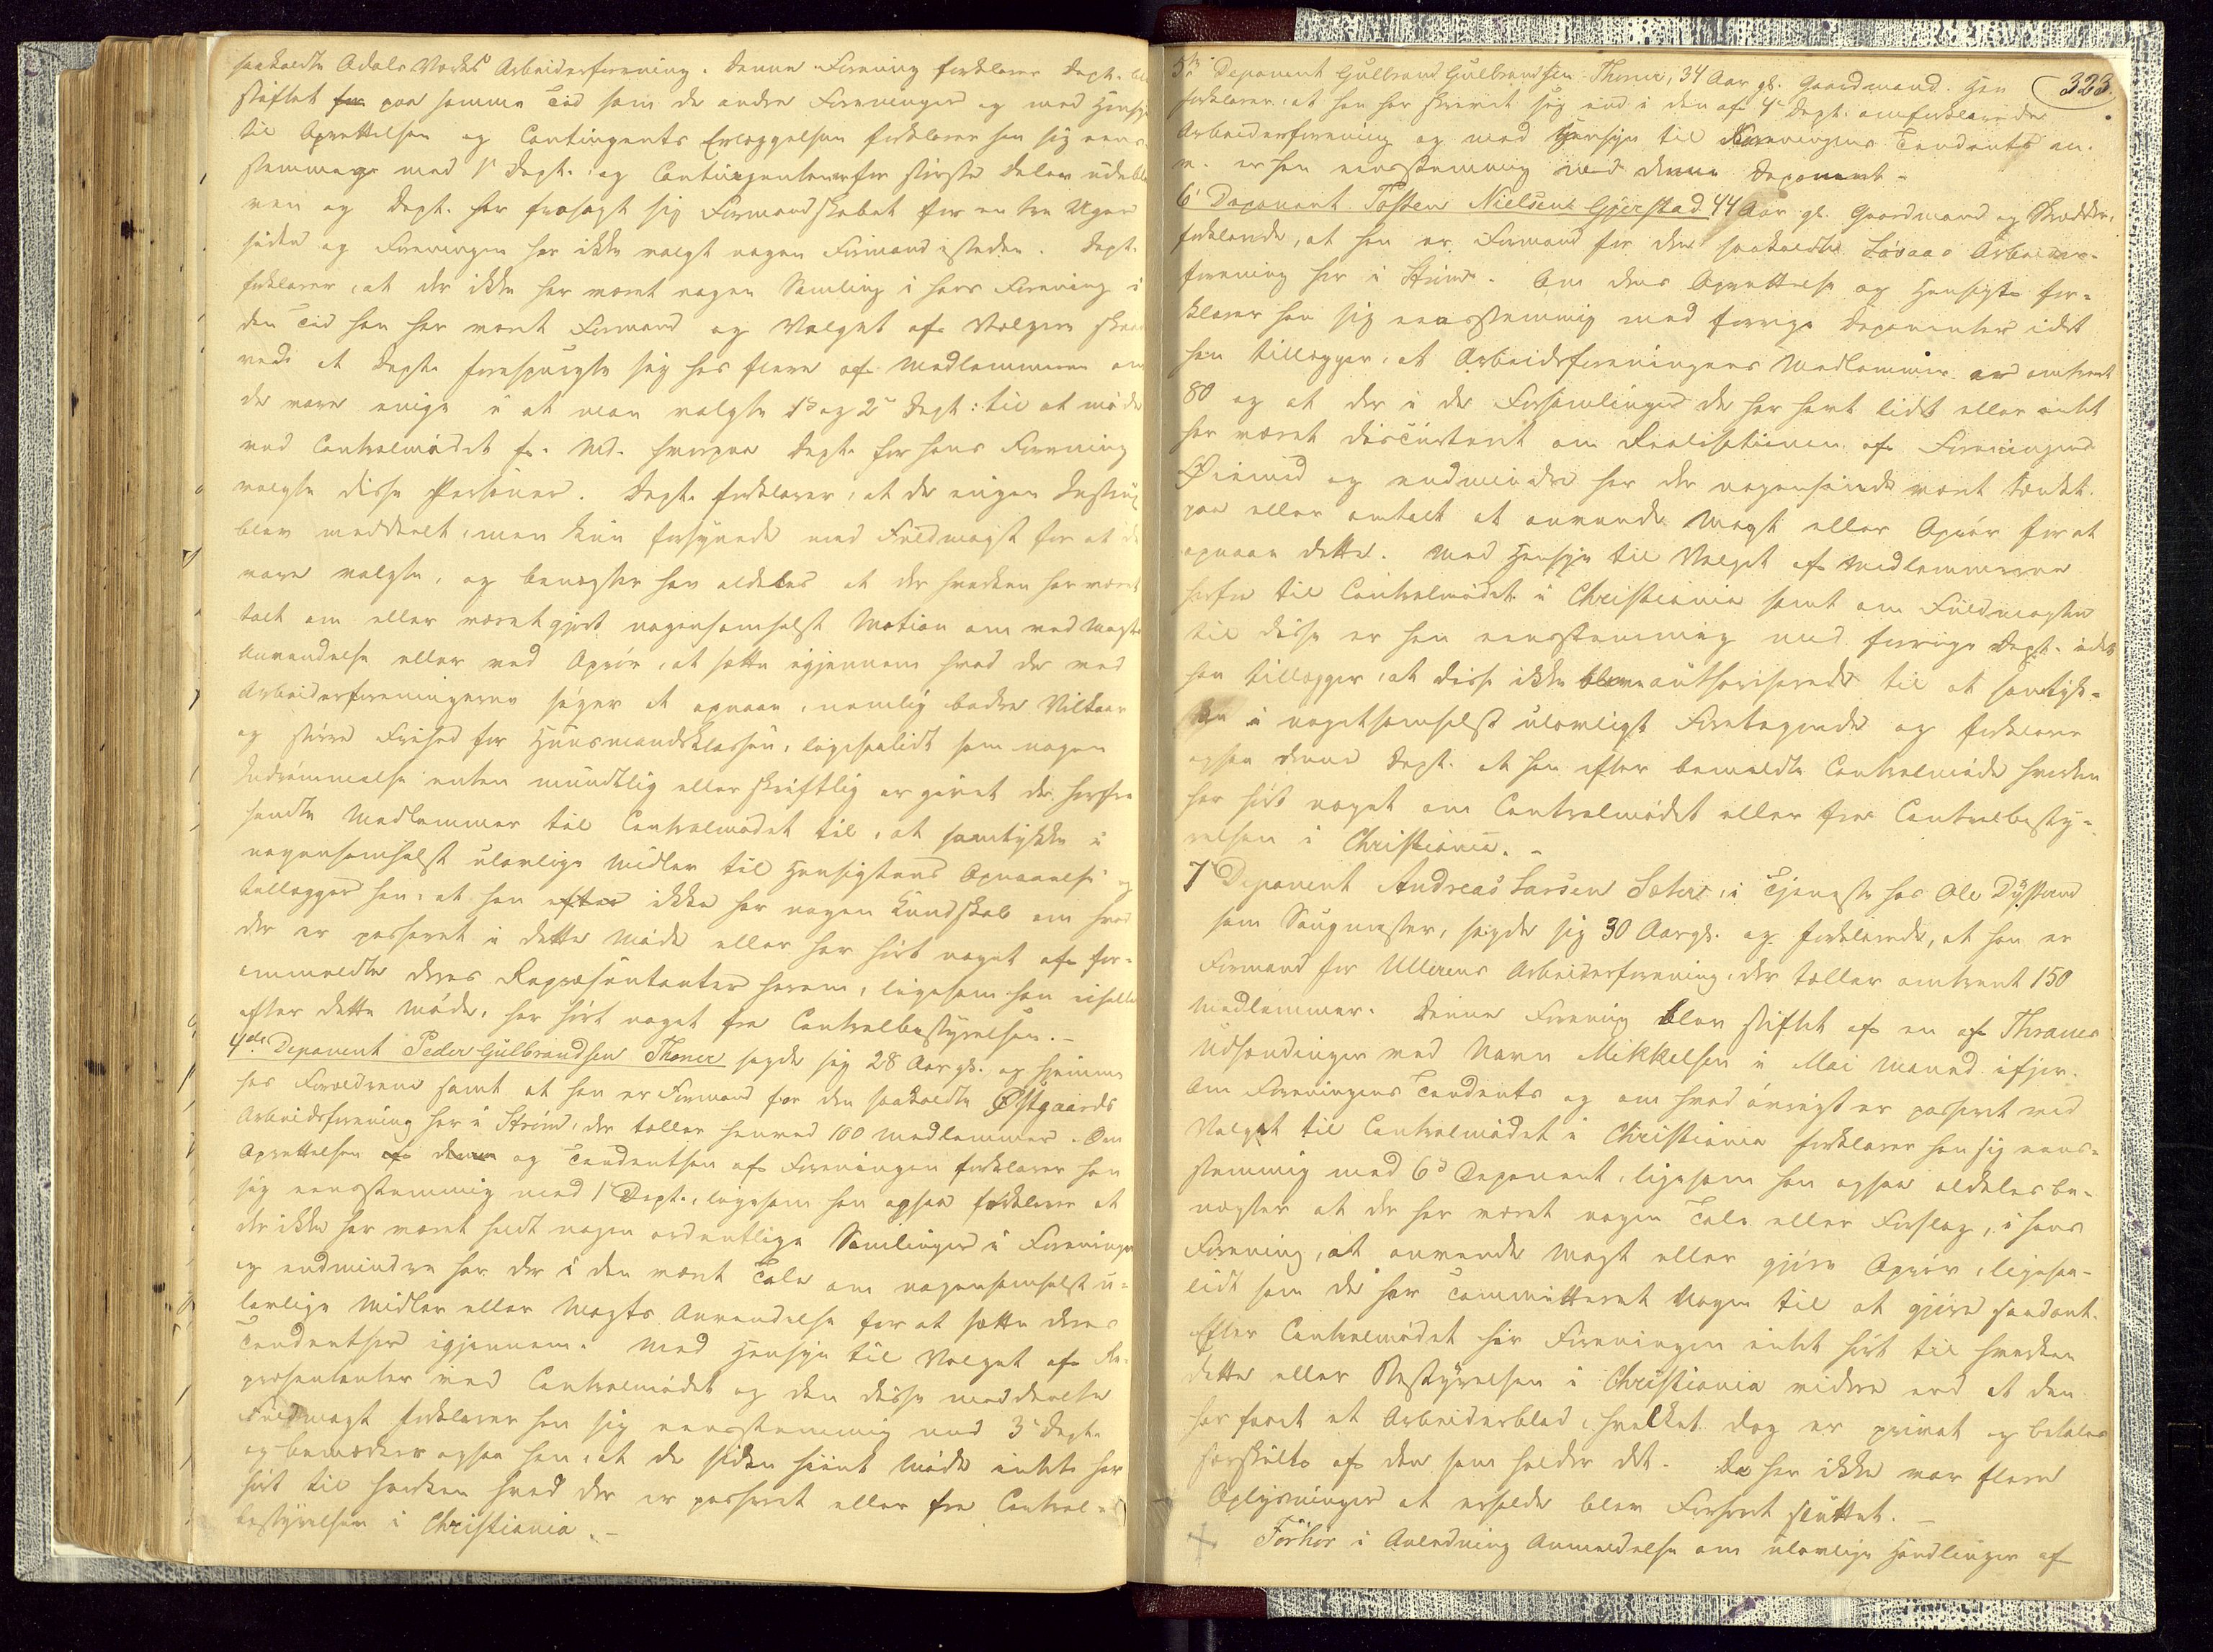 saakaldte Adals Værks Arbeiderforening. Denne Forening forklarer Dept. blev
stiftet paa samme Tid som de andre Foreninger og med Hensyn
til Oprettelsen og Contingents Erlæggelsen forklarer han sig eens-
stemmige med 1 Dept. og Contingenten er for største Delen udeble-
ven og Dept. har frasagt sig Formandskabet for en tre Uger
siden og Foreningen har ikke valgt nogen Formand isteden. Dept.
forklarer, at der ikke har været nogen Samling i hans Forening i
den Tid han har været Formand og Valget af Vælgere skede
ved at Dept. forespurgte sig hos flere af Medlemmerne om
de vare enige i at man valgte 1s og 2s Dept: til at møde
ved Centralmødet f. Md. hvorpaa Dept. for hans Forening
valgte disse Personer. Dept. forklarer, at der ingen Instrux
blev meddeelt, men kun forsynede med Fuldmagt for at de
vare valgte, og benægter han aldeles at der hverken har været
talt om eller været gjort nogensomhelst Motion om ved Magts
Anvendelse eller ved Oprør, at sætte igjennem hvad der ved
Arbeiderforeningerne søges at opnaae, nemlig bedre Vilkaar
og større Frihed for Huusmandsklassen, ligesaalidt som nogen
Indrømmelse enten mundtlig eller skriftlig er givet de herfra
sendte Medlemmer til Centralmødet til, at samtykke i
nogensomhelst ulovlige Midler til Hensigtens Opnaaelse og
tillægger han, at han ikke har nogen Kundskab om hvad
der er passeret i dette Møde eller har hørt noget af for-
ommeldte deres Repræsentanter herom, ligesom han iheller
efter dette Møde, har hørt noget fra Centralbestyrelsen.-
4de Deponent Peder Gulbrandsen Thoner sagde sig 28 Aar gl. og hjemme
hos Forældrene samt at han er Formand for den saakaldte Østgaards
Arbeidsforening her i Strøm, der tæller henved 100 Medlemmer. Om
Oprettelsen af denne og Tendentsen af Foreningen forklarer han
sig eensstemmig med 1 Dept., ligesom han ogsaa forklarer at
der ikke har været holdt nogen ordentlige Samlinger i Foreningen
og endmindre har der i den været Tale om nogensomhelst u-
lovlige Midler eller Magts Anvendelse for at sætte deres
Tendentser igjennem. Med Hensyn til Valget af Re-
præsentanter ved Centralmødet og den disse meddeelte
Fuldmagt forklarer han sig eensstemmig med 3 Dept.
og bemærker ogsaa han, at de siden hiint Møde intet har
hørt til hverken hvad der er passeret eller fra Central-
bestyrelsen i Christiania.-
323.
5te Deponent Gulbrand Gulbrandsen Thoner, 34 Aar gl. Gaardmand. Han
forklarer, at han har skrevet sig ind i den af 4 Dept. omforklarede
Arbeiderforening og med Hensyn til Foreningens Tendents m.
v. er han eensstemmig med denne Deponent-
6 Deponent Tosten Nielsen Gjerstad 44 Aar gl. Gaardmand og Skrædder,
forklarede, at han er Formand for den saakaldte Løvaas Arbeider-
forening her i Strøm. Om dens Oprettelse og Hensigt for-
klarer han sig eensstemmig med forrige Deponenter idet
han tillægger, at Arbeidsforeningens Medlemmer er omtrent
80 og at der i de Forsamlinger de har havt lidt eller intet
har været discuteret om Realisationen af Foreningens
Øiemed og endmindre har der nogensinde været tænkt
paa eller omtalt at anvende Magt eller Oprør for at
opnaae dette. Med Hensyn til Valget af Medlemmerne
herfra til Centralmødet i Christiania samt om Fuldmagten
til disse er han eensstemmig med forrige Dept. idet
han tillægger, at disse ikke bleve authoriserede til at samtyk-
ke i nogetsomhelst ulovligt Foretagende og forklarer
ogsaa denne Dept. at han efter bemeldte Centralmøde hverken
har hørt noget om Centralmødet eller fra Centralbesty-
relsen i Christiania.-
7 Deponent Andreas Larsen Sæter, i Tjeneste hos Ole Dysterud
som Saugmester, sagde sig 30 Aar gl. og forklarede, at han er
Formand for Ullerens Arbeiderforening, der tæller omtrent 150
Medlemmer. Denne Forening blev stiftet af en af Thranes
Udsendinger ved Navn Mikkelsen i Mai Maaned ifjor.
Om Foreningens Tendents og om hvad øvrigt er passeret ved
Valget til Centralmødet i Christiania forklarer han sig eens-
stemmig med 6s Deponent, ligesom han ogsaa aldeles be-
nægter at der har været nogen Tale eller Forslag, i hans
Forening, at anvende Magt eller gjøre Oprør, ligesaa-
lidt som de har committeret Nogen til at gjøre saadant.
Efter Centralmødet har Foreningen intet hørt til hverken
dette eller Bestyrelsen i Christiania videre end at den
har faaet et Arbeiderblad, hvilket dog er privat og betales
særskilt af den som holder det. Da her ikke var flere
Oplysninger at erholde blev Forhøret sluttet.-
Forhør i Anledning Anmeldelse om ulovlige Handlinger af